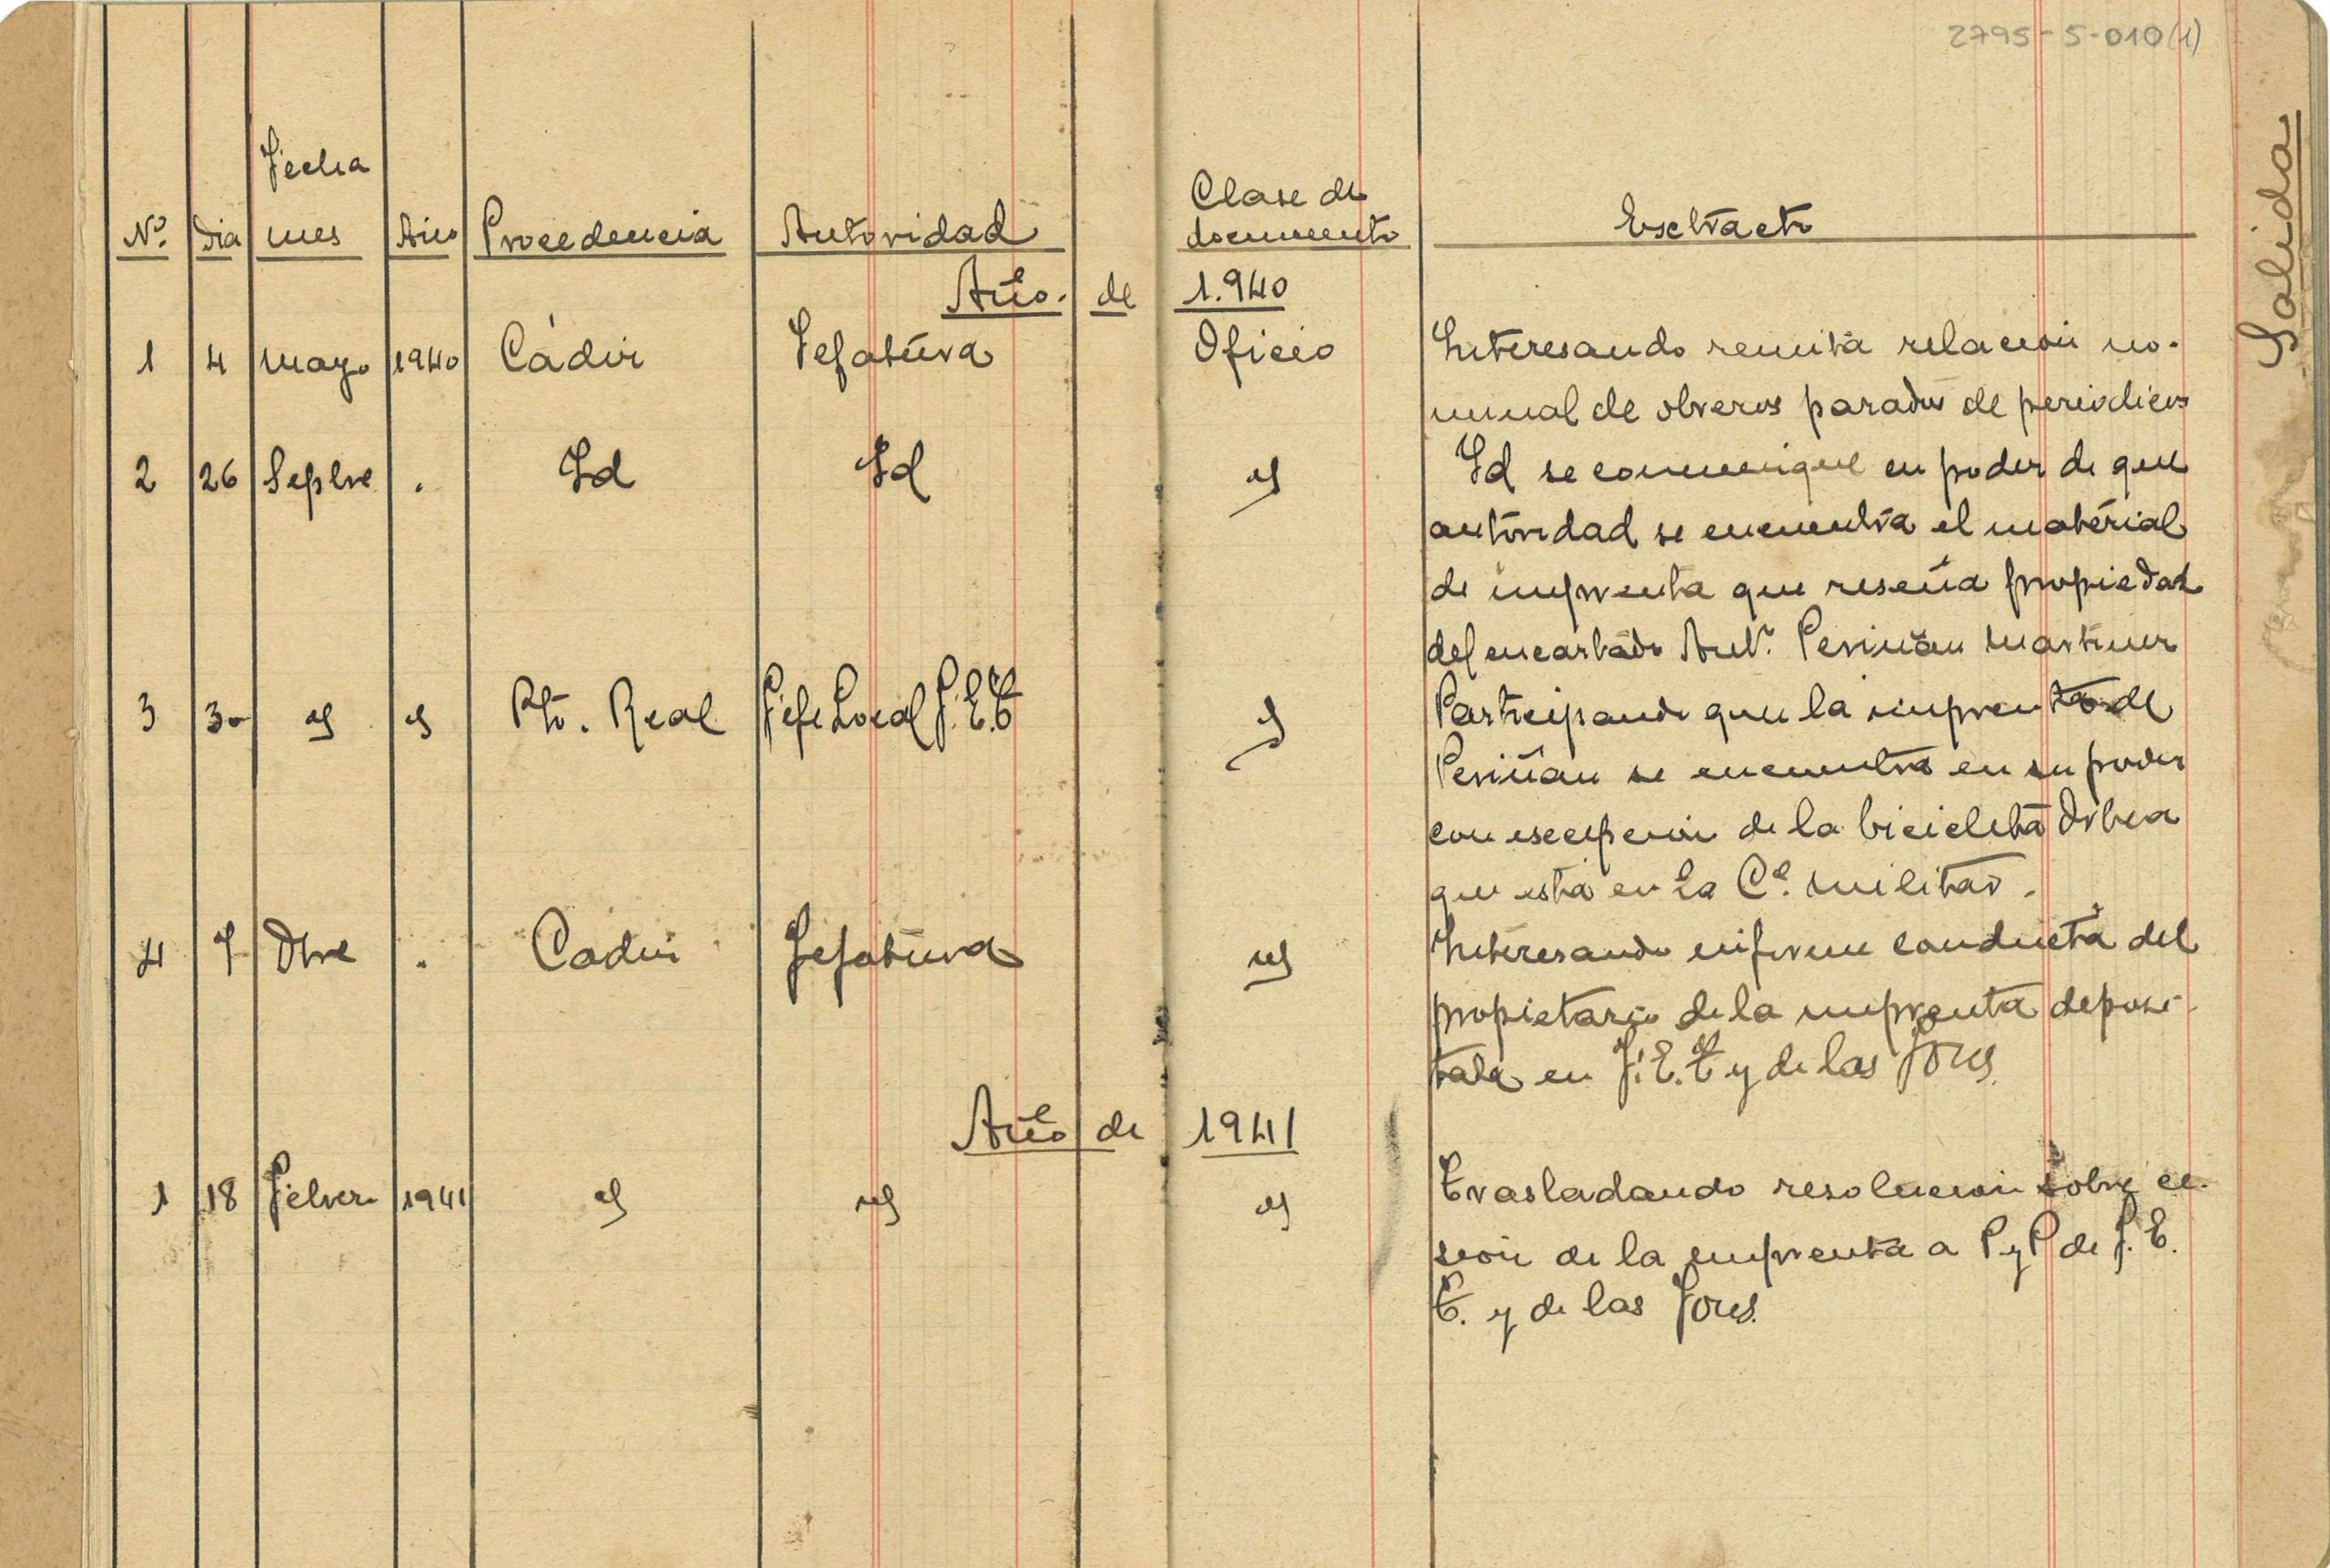 2795-5-010(1)
Salida
Fecha
Nº. Dia mes Año Procedencia Autoridad Clase de documento Esctracto
Año. de 1.940
1 4 mayo 1940 Cádiz Jefatura Oficio Interesando remita relacion no-
minal de obreros parados de periodicos
2 26 Sepbre . Id Id Id se comunique en poder de que
autoridad se encuentra el material
de imprenta que reseña propiedad
del encartado Antº. Periñán Martinez
3 30 Pto. Real Jefe Local F.E.T Participando que la imprenta de
Periñan se encuentra en su poder
con escepcion de la bicicleta
que esta en la Cª. militar.
4 7 Obre . Cadiz Jefatura Interesando informe conducta del
propietario de la imprenta deposi-
tada en F.E.T y de las Jons
Año de 1941
1 18 Febrer 1941 Trasladando resolucion sobre ce-
sion de la imprenta a P y P de F.E.
T. y de las Jons.